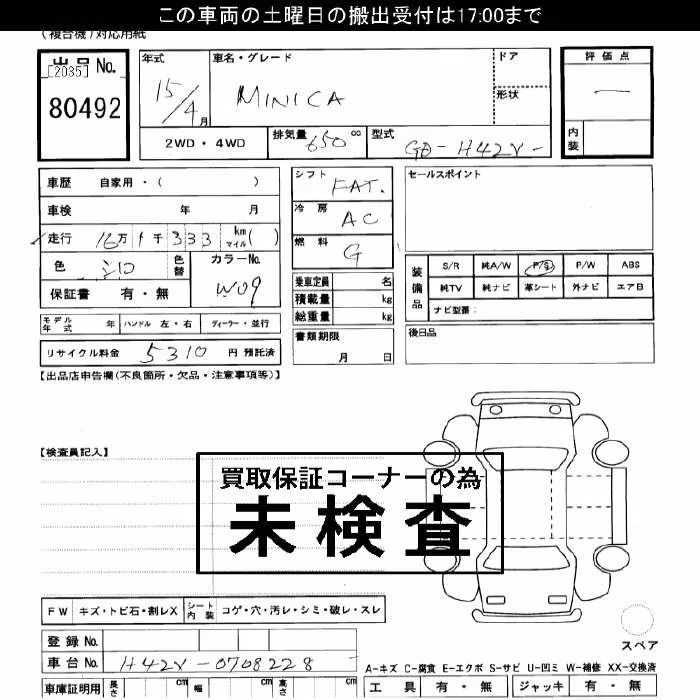 この車両の土曜日の搬出受付は17:00まで
(複合機)対応用紙
出品 No.
[2035]
80492
年式
15/4月
車名・グレード
MINICA
ドア
形状
2WD・4WD
排気量 650 cc
型式
GD-H42V-
評価点
内装
車歴 自家用・( )
車検 年 月
走行 16万1千333 km マイル ( )
色
色替
カラーNo.
W09
保証書 有・無
シフト FAT.
冷房 AC
燃料 G
乗車定員 名
積載量 kg
総重量 kg
書類期限
月 日
セールスポイント
装備品
S/R 純A/W P/S P/W ABS
純TV 純ナビ 革シート 外ナビ エアB
ナビ型番:
後日品
モデル年式 年 ハンドル 左・右 ディーラー・並行
リサイクル料金 5310 円 預託済
【出品店申告欄(不良箇所・欠品・注意事項等)】
【検査員記入】
買取保証コーナーの為
未検査
FW キズ・トビ石・割レX シート内装 コゲ・穴・汚レ・シミ・破レ・スレ
スペア
登録 No.
車台 No. H42V-0708228
A-キズ C-腐食 E-エクボ S-サビ U-凹ミ W-補修 XX-交換済
車庫証明用 長さ cm 幅 cm 高さ cm
工具 有・無 ジャッキ 有・無